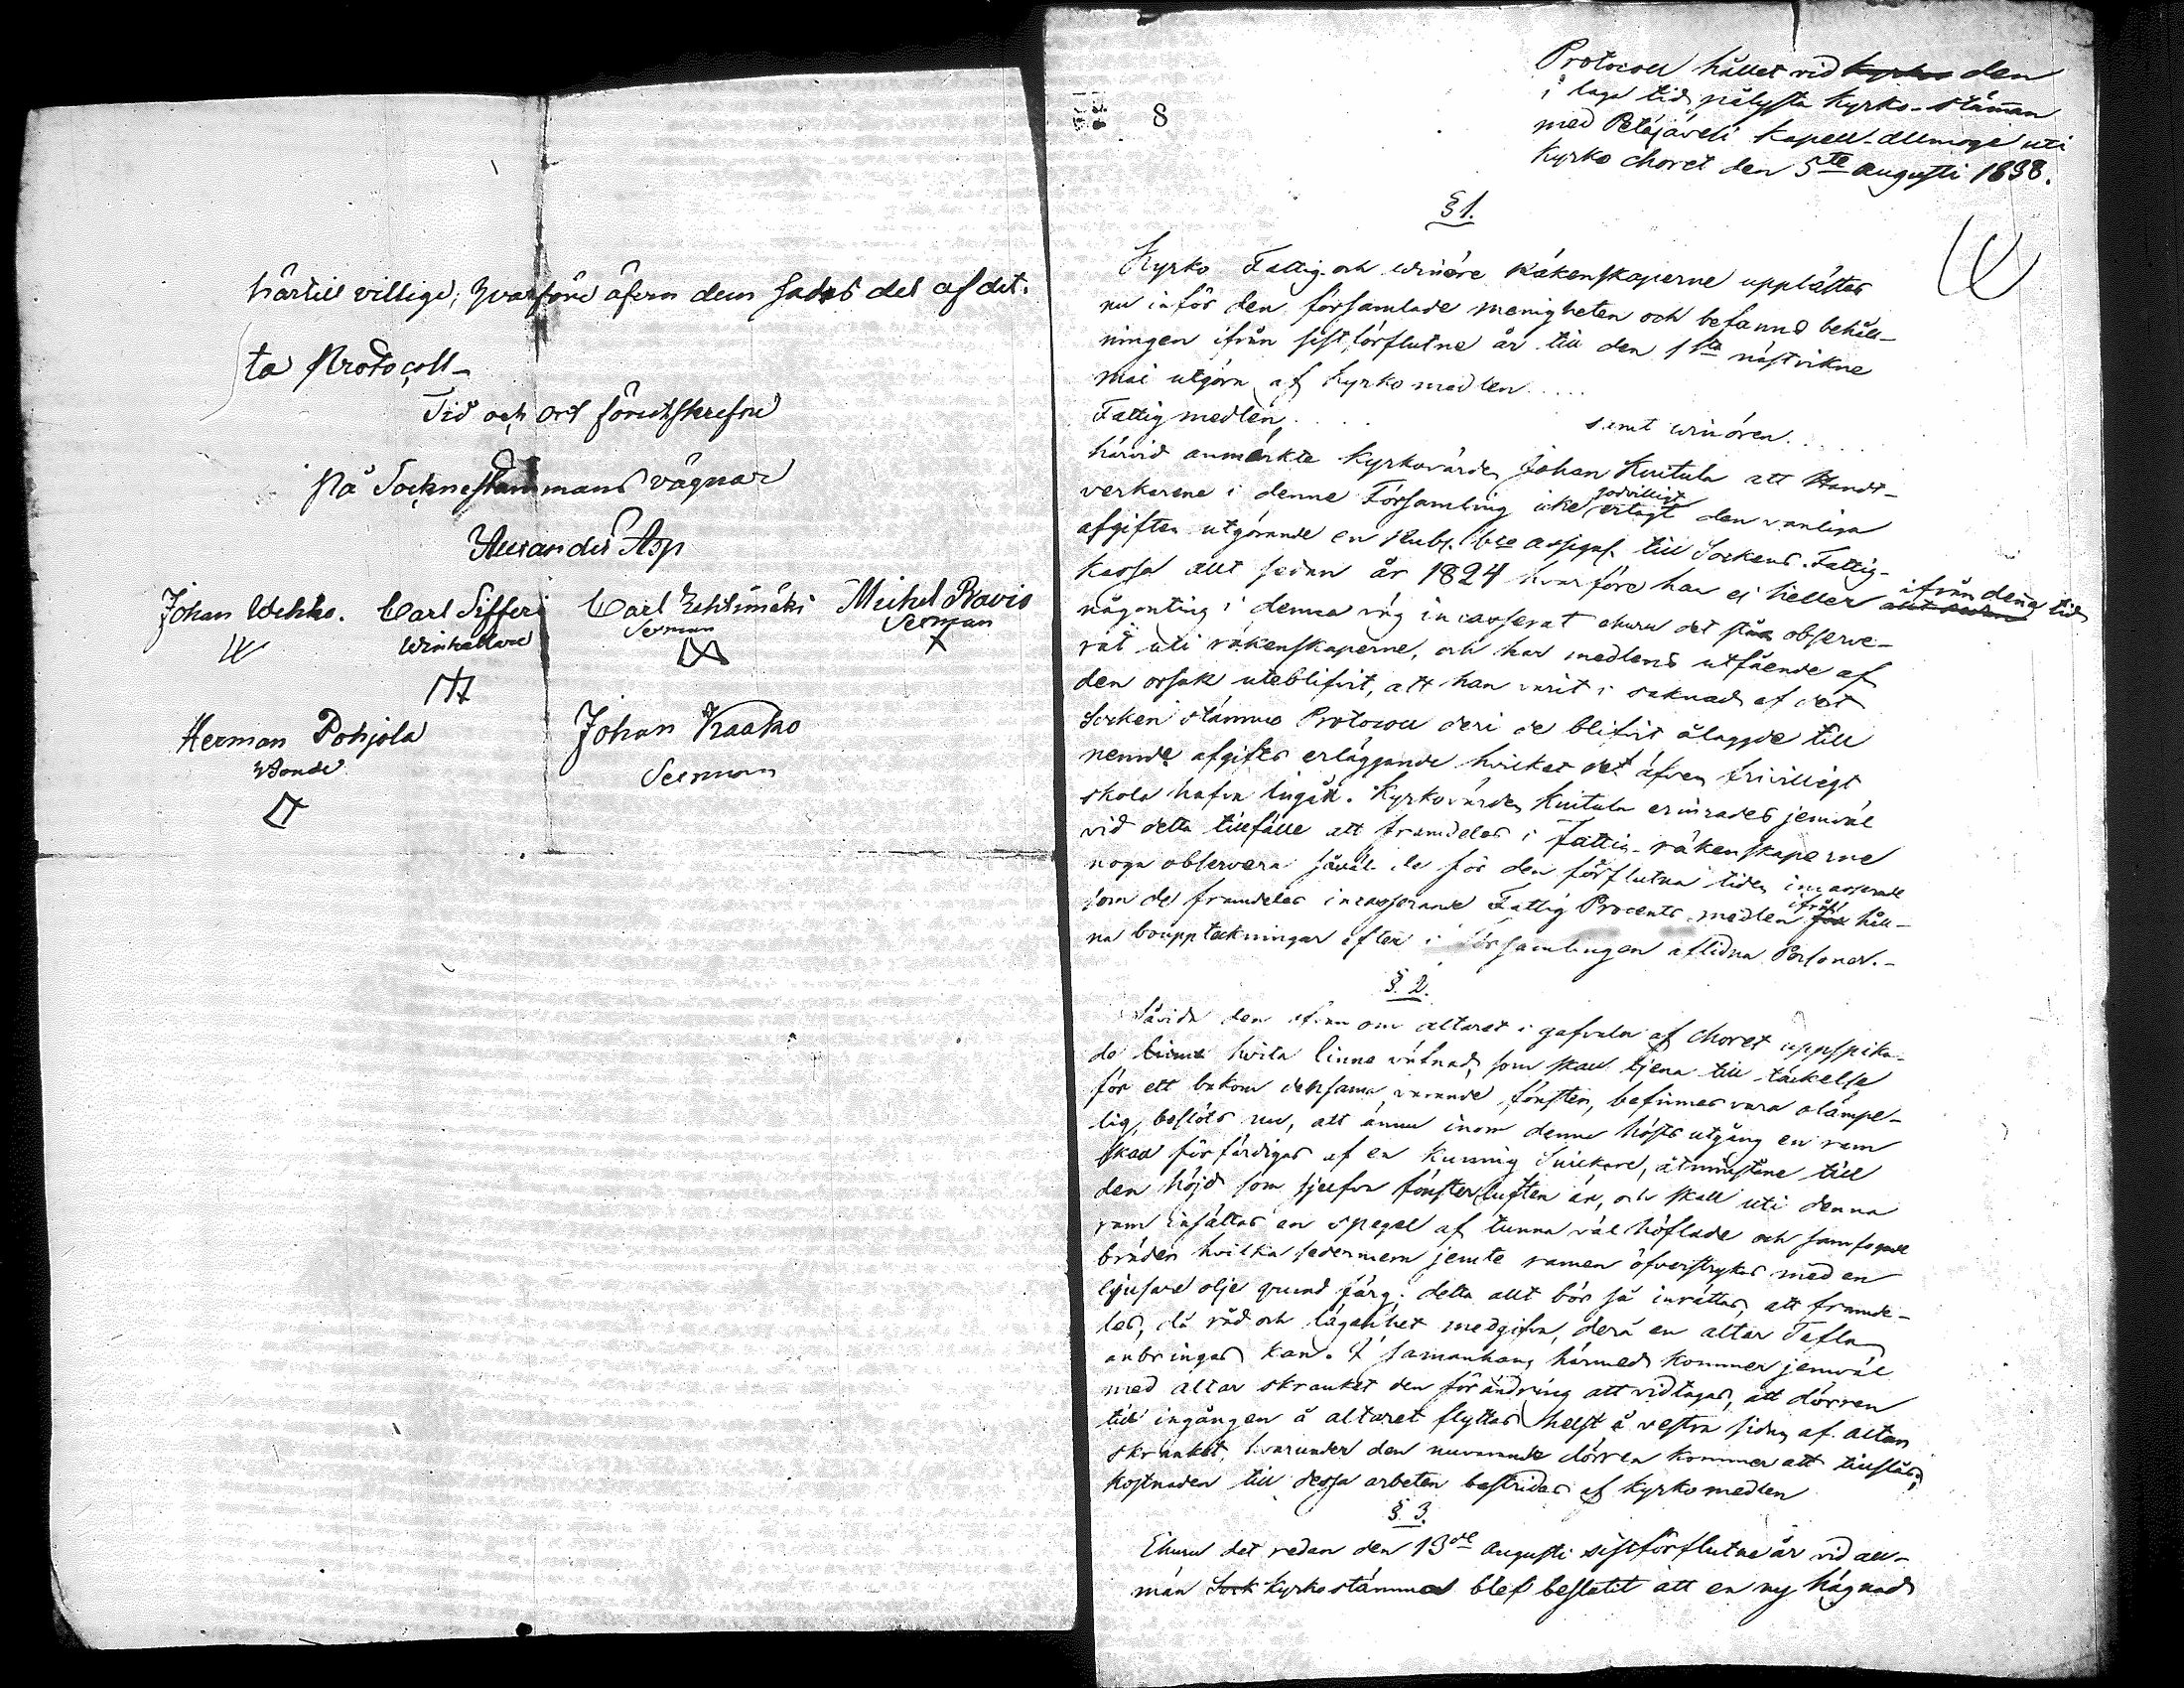 härtill villige; hvarföre äfven dem sades det af det.
ta Protocoll_
Tid och ort förutskrefne
på Socknestämmans vägnar
Alexander Asp
Johan Wehko. Carl Sifferi Carl Lehtimäki Michel Ravio
Winhållare Sexman Sexman
Herman Pohjola Johan Kaako
Bonde Sexman
8
Protocoll hållet vid Kyrko den
i laga tid pålysta Kyrko-stäman
med Petäjävesi Kapell-Allmoge uti
Kyrko choret den 5te Augusti 1838.
§ 1.
Kyrko Fattig och winöre Räkenskaperne uppläстes
nu inför den församlade menigheten och befanns behåll-
ningen ifrån sistförflutne år till den 1sta nästvikne
Mai utgöra af Kyrko medlen.....
Fattig medlen, ..... samt winören...
härvid anmärkte Kyrkovärden Johan Kuitula att Handt-
verkarene i denne Församling icke godvilligt erlagt den vanliga
afgiften utgörande en Rub. bco assignr. till Sockens Fattig-
kassa allt sedan år 1824 hvarföre han ej heller allt sedan ifrån denna tid
någonting i denna väg incasserat ehuru det står observe-
rat uti räkenskaperne, och har medlens utfående af
den orsak uteblifvit, att han varit i saknad af det
Socken stämmo Protocoll deri de blifvit ålaggde till
nemnde afgifts erläggande hvilket det äfven frivilligt
skola hafva ingått. Kyrkovärden Kuitula erinrades jemväl
vid detta tillfälle att framdeles i Fattig-räkenskaperne
noga observera såväl de för den förflutna tiden incasserade
som de framdeles incasserande Fattig Procents medlen för ifrån håll-
na bouppteckningar efter i församlingen aflidna Personer._
§. 2.
Såvida den ofvan om altaret i gafveln af choret uppspika-
de linne hvita linne väfnad, som skall tjena till täckelse
för ett bakom densamma varande fönster, befinnes vara olämpe-
lig, beslöts nu, att ännu inom denne hösts utgång en ram
skall förfärdigas af en kunnig Snickare, åtminstone till
den höjd som sjelfva fönster luften är, och skall uti denna
ram insättas en spegel af tunna väl höflade och samfogade
bräden hvilka sedermera jemte ramen öfverstrykes med en
ljusare olje grund färg. detta allt bör så inrättas, att framde-
les, då råd och lägenhet medgifva, derå en altar Tafla
anbringas kan. I samanhang härmed kommer jemväl
med altar skranket den förändring att vidtagas, att dörren
till ingången å altaret flyttas helst å vestra sidan af altar
skranket, hvarunder den nuvarande dörren kommer att tillslås,
kostnaden till dessa arbeten bestrides af kyrko medlen
§. 3.
Ehuru det redan den 13de Augusti sistförflutne år vid all-
män Sock Kyrkostämma blef beslutit att en ny hägnad